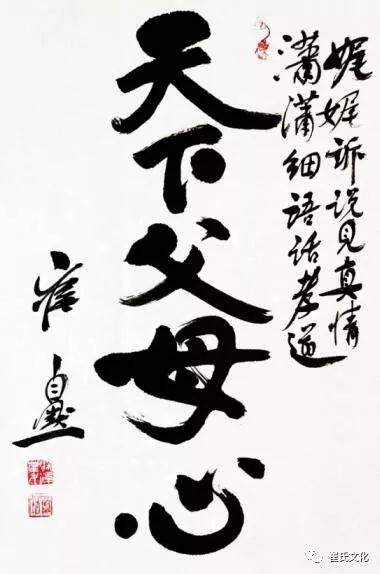 娓娓诉说见真情
潇潇细語话孝道
天下父母心
崔自默
崔氏文化